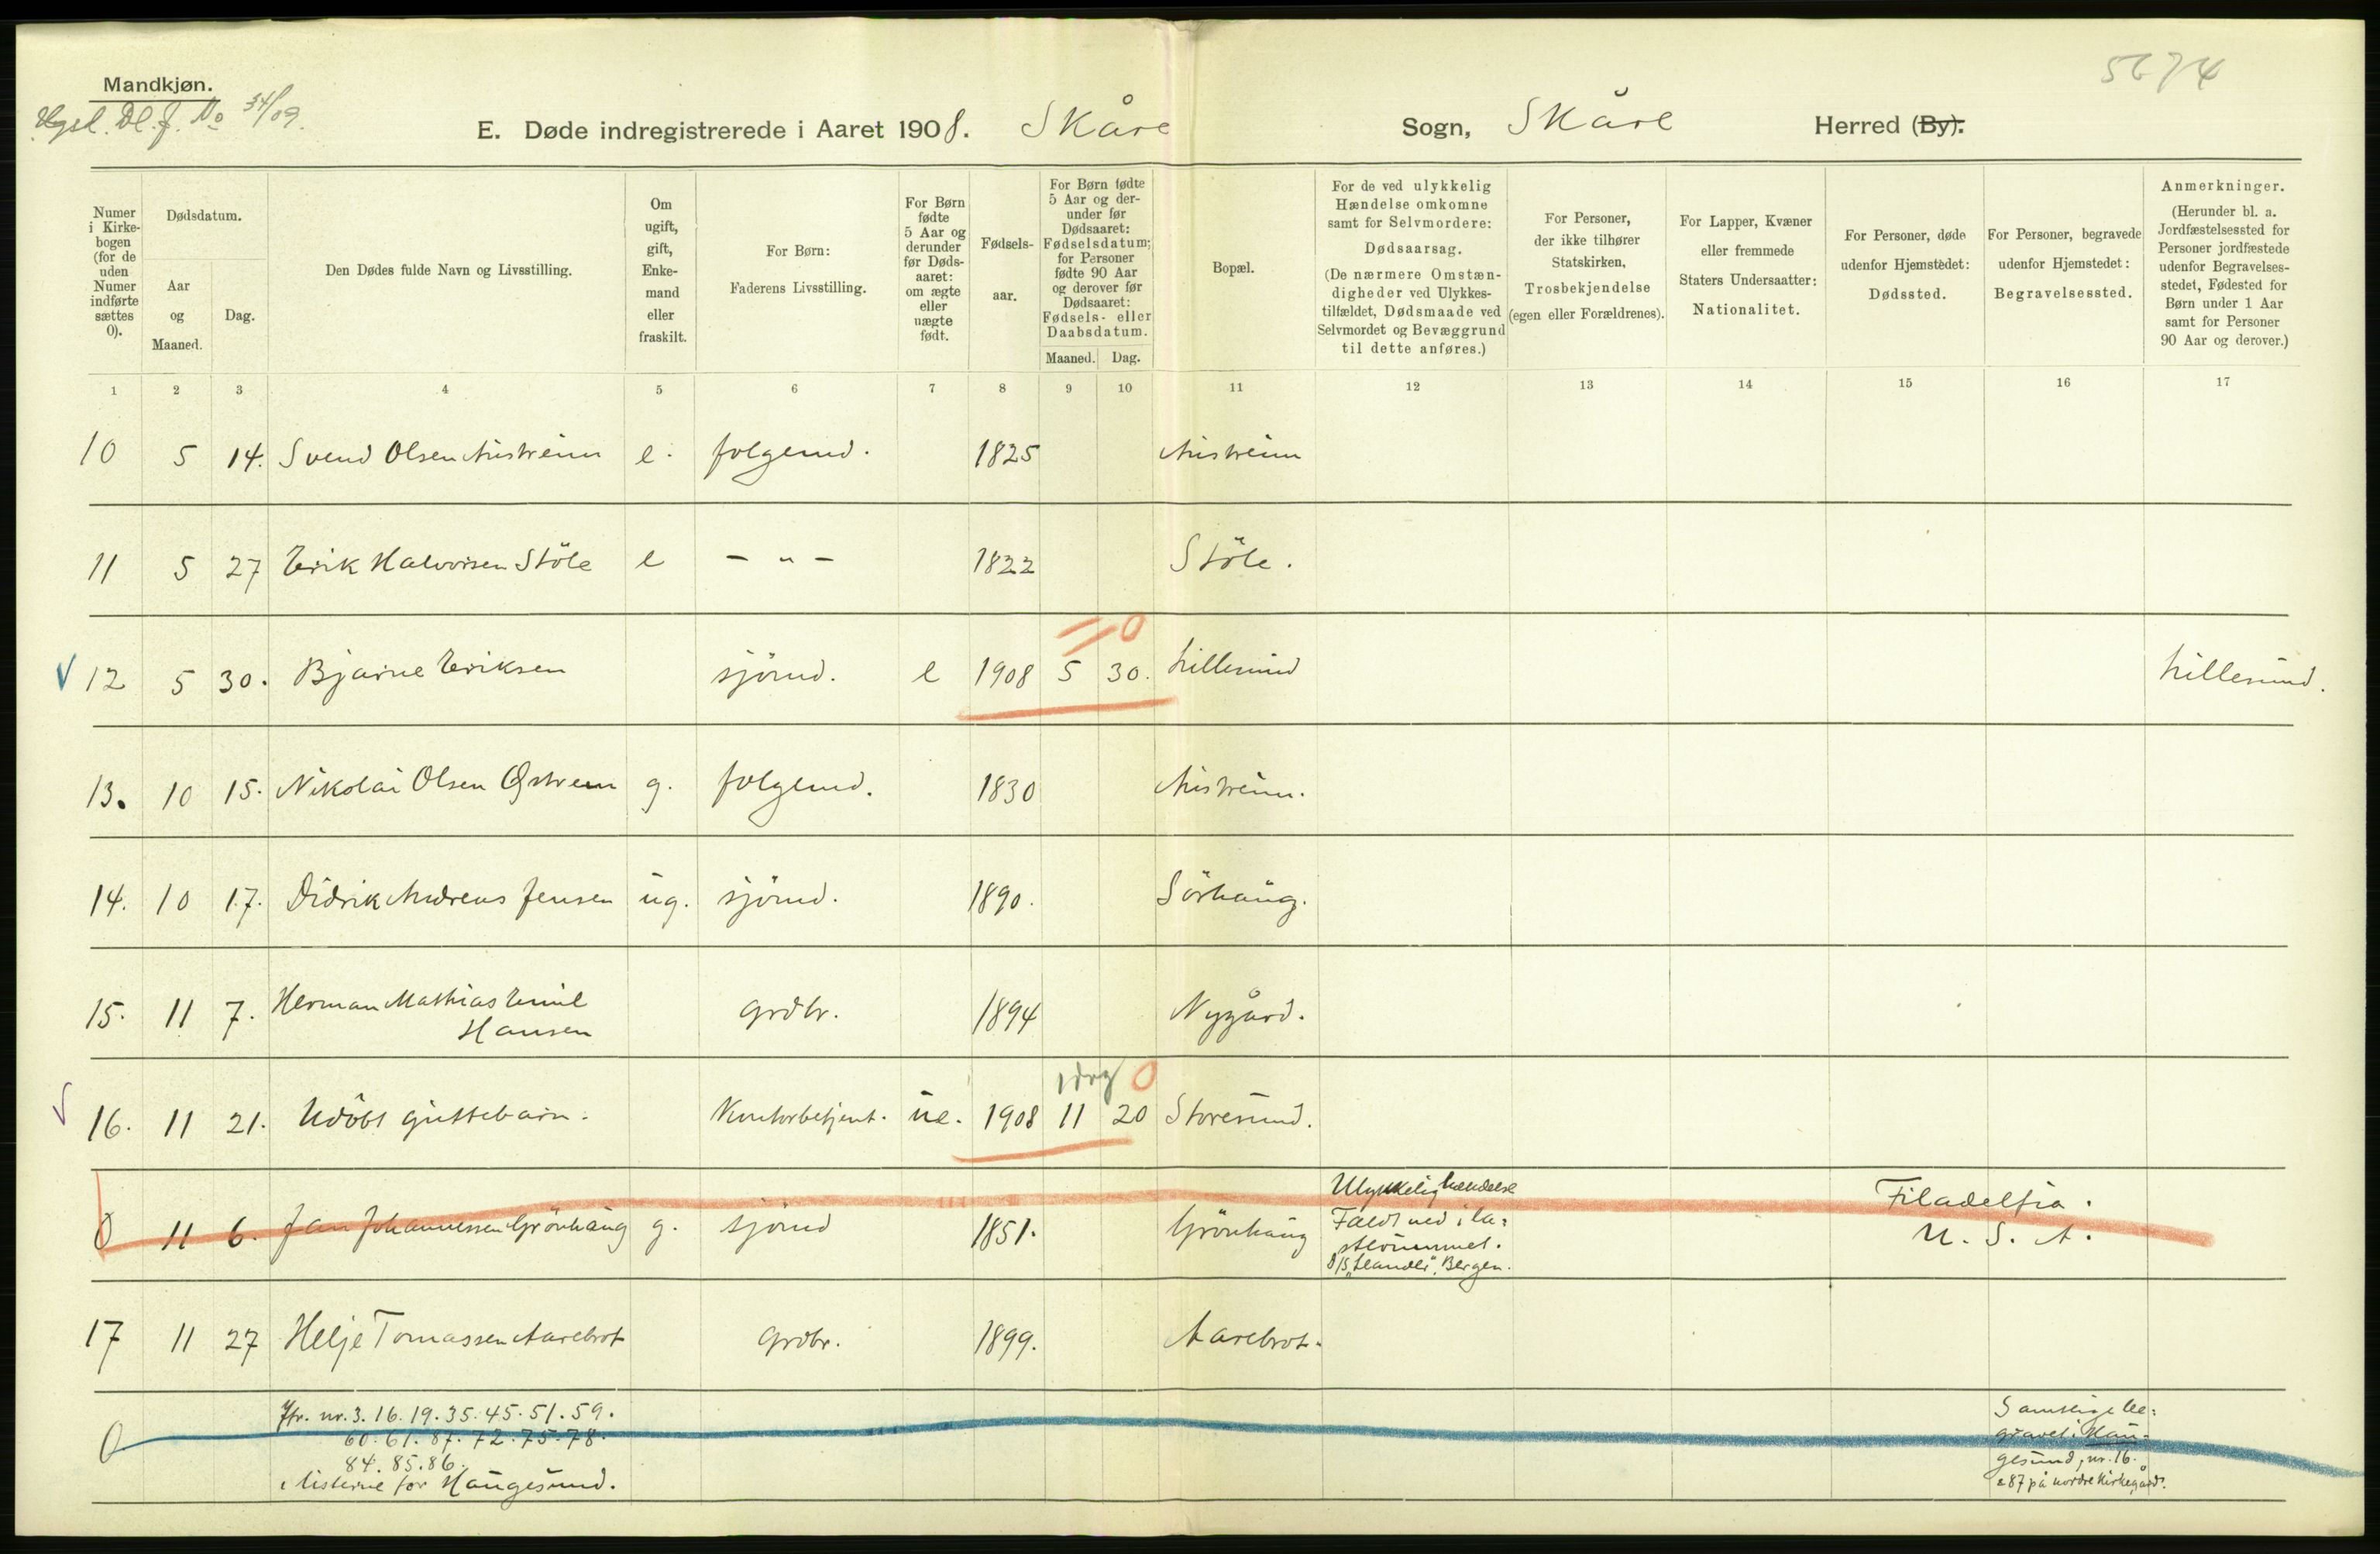 Mandkjøn.
34/09.
5674
E. Døde indregistrerede i Aaret 1908. Skåre Sogn, Skåre Herred (By).
Numer i Kirkebogen (for de uden Numer indførte sættes 0).
Dødsdatum.
Aar og Maaned.
Dag.
Den Dødes fulde Navn og Livsstilling.
Om ugift, gift, Enkemand eller fraskilt.
For Børn: Faderens Livsstilling.
For Børn fødte 5 Aar og derunder før Dødsaaret: om ægte eller uægte født.
Fødselsaar.
For Børn fødte 5 Aar og derunder før Dødsaaret: Fødselsdatum; for Personer fødte 90 Aar og derover før Dødsaaret: Fødsels- eller Daabsdatum.
Maaned. Dag.
Bopæl.
For de ved ulykkelig Hændelse omkomne samt for Selvmordere: Dødsaarsag. (De nærmere Omstændigheder ved Ulykkestilfældet, Dødsmaade ved Selvmordet og Bevæggrund til dette anføres.)
For Personer, der ikke tilhører Statskirken, Trosbekjendelse (egen eller Forældrenes).
For Lapper, Kvæner eller fremmede Staters Undersaatter: Nationalitet.
For Personer, døde udenfor Hjemstedet: Dødssted.
For Personer, begravede udenfor Hjemstedet: Begravelsessted.
Anmerkninger. (Herunder bl. a. Jordfæstelsessted for Personer jordfæstede udenfor Begravelsesstedet, Fødested for Børn under 1 Aar samt for Personer 90 Aar og derover.)
1 2 3 4 5 6 7 8 9 10 11 12 13 14 15 16 17
10 5 14. Svend Olsen Austreim e. folgemd. 1825 Austreim
11 5 27 Erik Halvorsen Støle e - " - 1822 Støle.
0
12 5 30. Bjarne Eriksen sjömd. e 1908 5 30. Lillesund Lillesund.
13. 10 15. Nikolai Olsen Østrem g. folgemd. 1830 Austreim.
14. 10 17. Didrik Andreas Jensen ug. sjömd. 1890. Sörhaug.
15. 11 7. Herman Mathias Emil
Hansen grdbr. 1894 Nygård.
1 dag 0
16. 11 21. Udöbt guttebarn. Kontorbetjent. ue. 1908 11 20 Storesund.
0 11 6. Jan Johannessen Grönhaug g. sjömd 1851. Grönhaug
Ulykkelig hændelse
Faldt ned i la=
sterummet.
D/S Bergen.
Filadelfia.
U. S. A.
17 11 27 Helje Tomassen Aarebrot grdbr. 1899. Aarebrot.
0 Jfr. nr. 3. 16. 19. 35. 45. 51. 59.
60. 61. 87. 72. 75. 78.
84. 85. 86.
i listerne for Haugesund.
Samtlige be=
gravet i Hau=
gesund, nr. 16.
& 87 på nordre kirkegård.